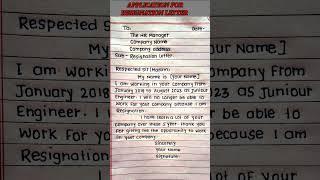 APPLICATION FOR
RESIGNATION LETTER
To, Date-
The HR Manager
Company Name
Company address
Sub- Resignation Letter.
Respected sir (Madam)
My name is [Your Name]
I am working in your company From
January 2018 to August 2023 as Juniour
Engineer. I will no longer be able to
work for your company because I am
Resignation.
I have learn a lot of your
company over these 5 year. Thank you
for giving me the opportunity to work
in your company.
Sincerely
Your name
Signature
Respected si
My [Your Name]
I am workin pany From
January 201 as Juniour
Engineer. I be able to
work For you because I am
Resignation